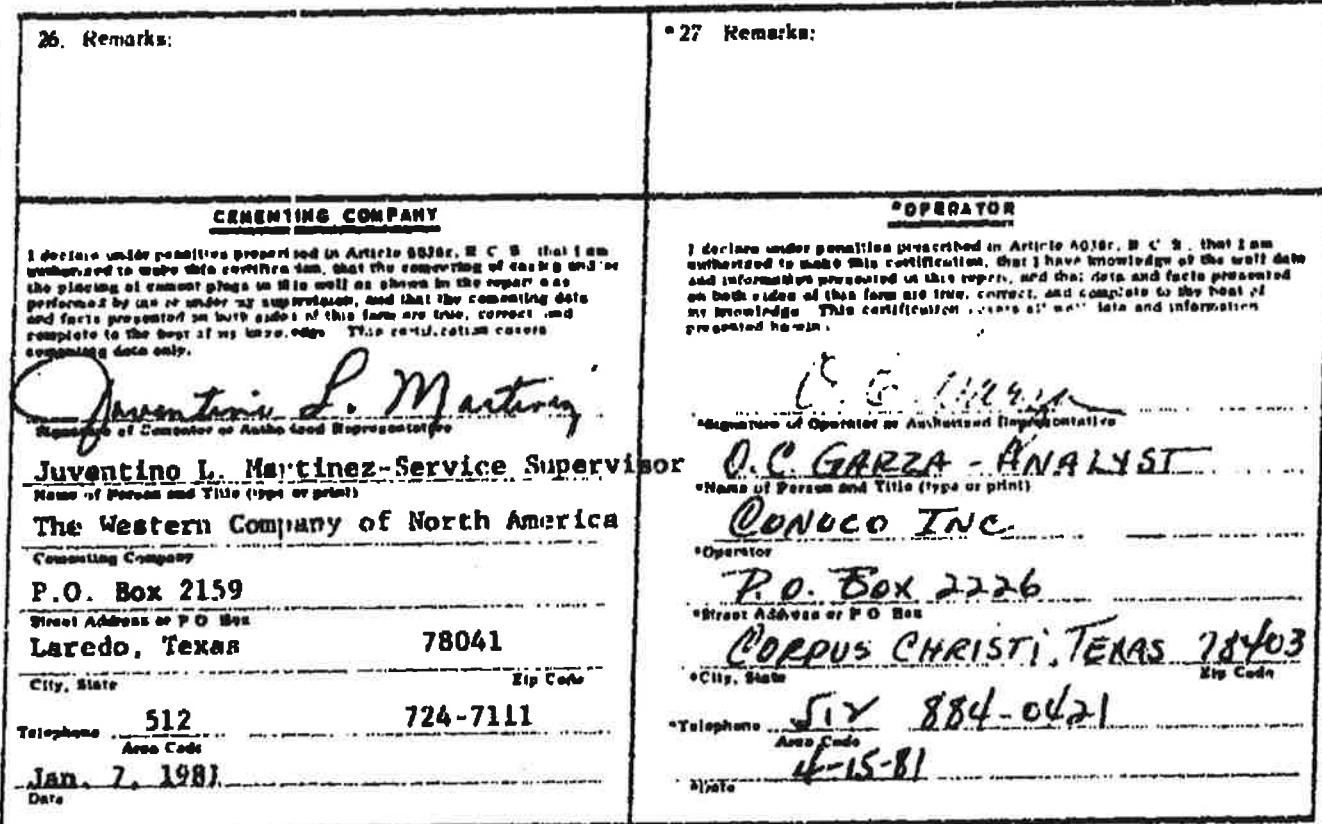 26. Remarks:
*27 Remarks:
CEMENTING COMPANY
I declare under penalties prescribed in Article 6036c, R C S that I am
authorized to make this certification, that the cementing of casing and/or
the placing of cement plugs in this well as shown in the report was
performed by me or under my supervision, and that the cementing data
and facts presented on both sides of this form are true, correct and
complete to the best of my knowledge. This certification covers
cementing data only.
Juventino L. Martinez
Signature of Cementer or Authorized Representative
Juventino L. Martinez-Service Supervisor
Name of Person and Title (type or print)
The Western Company of North America
Cementing Company
P.O. Box 2159
Street Address or P O Box
Laredo, Texas 78041
City, State Zip Code
Telephone 512 724-7111
Area Code
Jan. 7, 1981
Date
*OPERATOR
I declare under penalties prescribed in Article 6036c, R C S, that I am
authorized to make this certification, that I have knowledge of the well data
and information presented in this report, and that data and facts presented
on both sides of this form are true, correct, and complete to the best of
my knowledge. This certification covers all well data and information
presented herein.
*Signature of Operator or Authorized Representative
O.C. GARZA - ANALYST
*Name of Person and Title (type or print)
CONOCO INC.
*Operator
P.O. BOX 2226
*Street Address or P O Box
CORPUS CHRISTI, TEXAS 78403
*City, State Zip Code
*Telephone 512 884-0421
Area Code
4-15-81
*Date